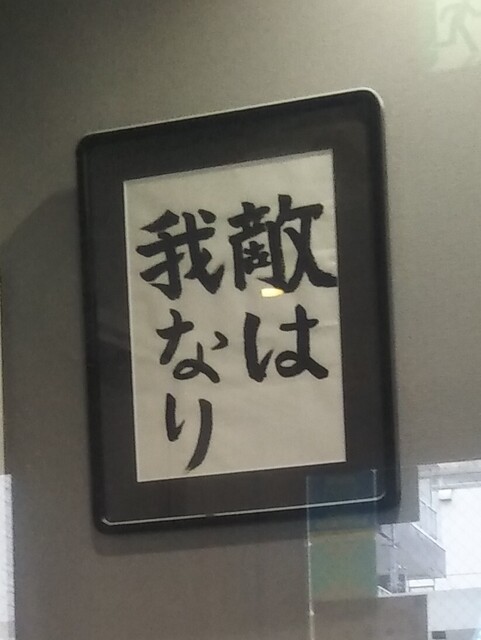 敵は
我なり